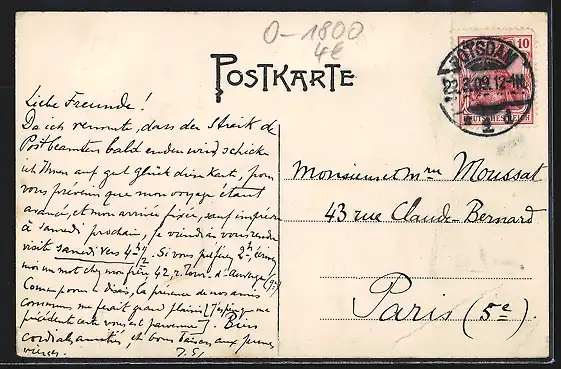 O-1800
4€
POSTKARTE
10
POTSDAM
22.3.09.12-1N
1
DEUTSCHES REICH
Liebe Freunde!
Da ich vermute, dass der Streik de
Postbeamten bald enden wird schicke
ich Ihnen auf gut Glück diese Karte, pour
vous prévenir que mon voyage étant
avancé, et mon arrivée fixée, sauf imprévu
à samedi prochain, je viendrai vous rendre
visite samedi vers 4 h 1/2. Si vous préférez 2 h, écrivez
moi un mot chez mon frère 42, r. Tour d'Auvergne (9e)
Comme je vous le disais, la présence de nos amis
communs me ferait grand plaisir [J'espère que ma
précédente carte vous est parvenue]. Bien
cordiales amitiés, et bons baisers aux jeunes
Monsieur et Mme Moussat
43 rue Claude-Bernard
Paris (5e).